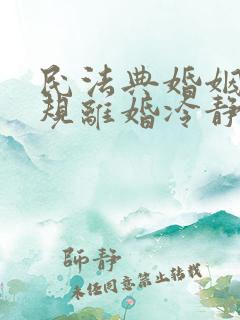 民法典婚姻
規離婚冷靜
師静
未经同意禁止转载